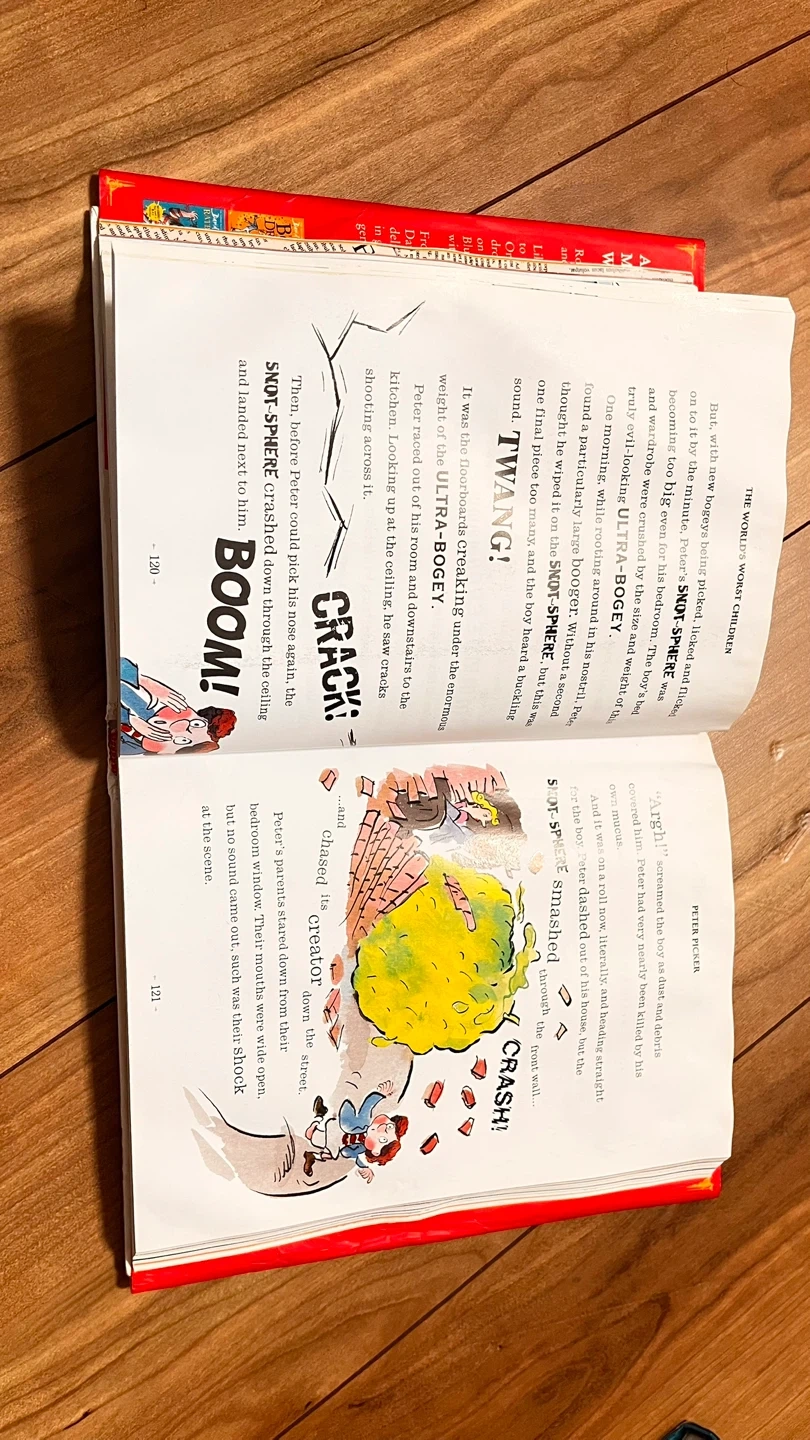 THE WORLD'S WORST CHILDREN
But, with new bogeys being picked, licked and flicked
on to it by the minute, Peter's SNOT-SPHERE was
becoming too big even for his bedroom. The boy's bed
and wardrobe were crushed by the size and weight of this
truly evil-looking ULTRA-BOGEY.
One morning, while rooting around in his nostril, Peter
found a particularly large booger. Without a second
thought he wiped it on the SNOT-SPHERE, but this was
one final piece too many, and the boy heard a buckling
sound. TWANG!
It was the floorboards creaking under the enormous
weight of the ULTRA-BOGEY.
Peter raced out of his room and downstairs to the
kitchen. Looking up at the ceiling, he saw cracks
shooting across it.
CRACK!
Then, before Peter could pick his nose again, the
SNOT-SPHERE crashed down through the ceiling
and landed next to him. BOOM!
120
PETER PICKER
"Argh!" screamed the boy as dust and debris
covered him. Peter had very nearly been killed by his
own mucus.
And it was on a roll now, literally, and heading straight
for the boy. Peter dashed out of his house, but the
SNOT-SPHERE smashed through the front wall...
CRASH!
...and chased its creator down the street.
Peter's parents stared down from their
bedroom window. Their mouths were wide open,
but no sound came out, such was their shock
at the scene.
121